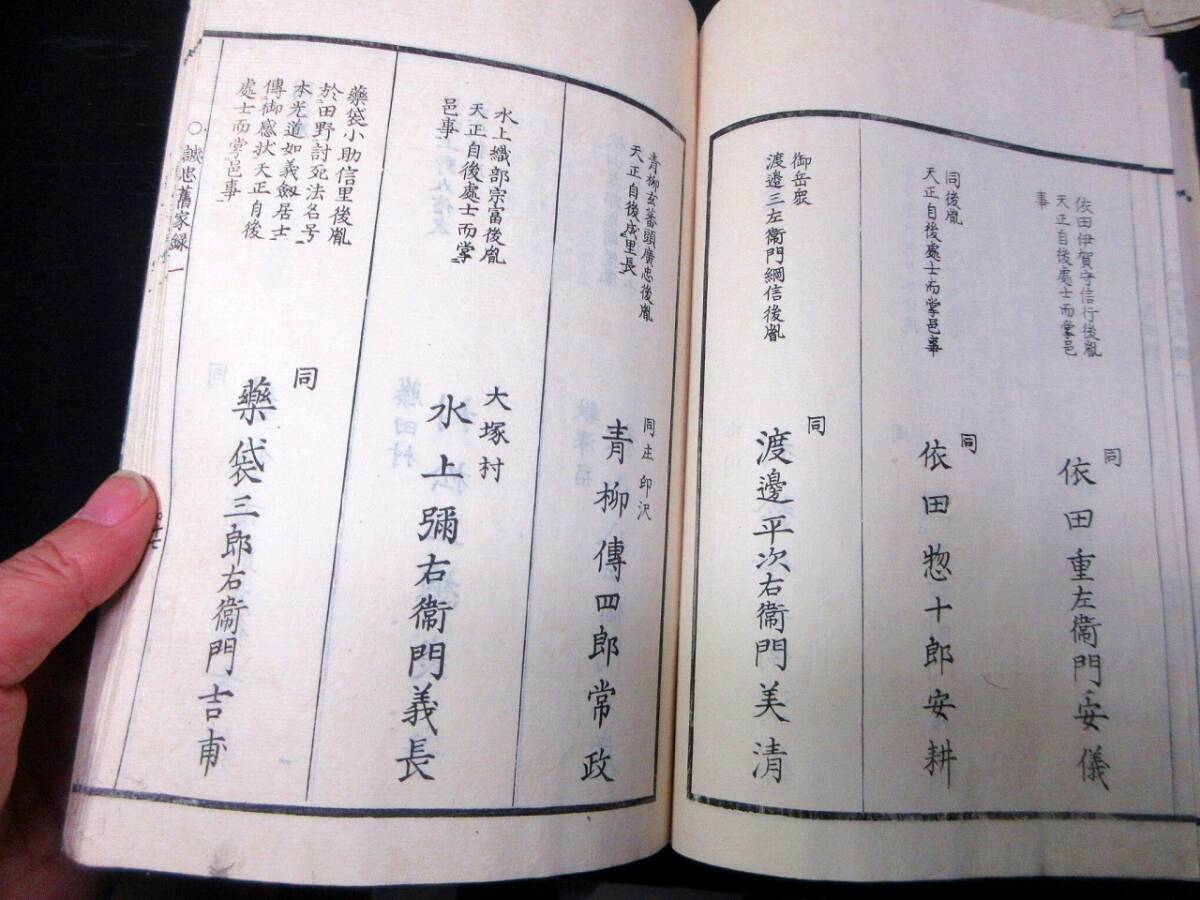 依田伊賀守信行後胤
天正自後處士而掌邑
事
同
依田重左衞門安儀
同後胤
天正自後處士而掌邑事
同
依田惣十郎安耕
御岳衆
渡邉三左衞門綱信後胤
同
渡邉平次右衞門美清
青柳玄蕃頭廣忠後胤
天正自後成里長
同庄印沢
青柳傳四郎常政
水上織部宗富後胤
天正自後處士而掌
邑事
大塚村
水上彌右衞門義長
藥袋小助信里後胤
於田野討死法名号
本光道如義劔居士
傳御感状天正自後
處士而掌邑事
同
藥袋三郎右衞門吉甫
○誠忠舊家録一
〇十七